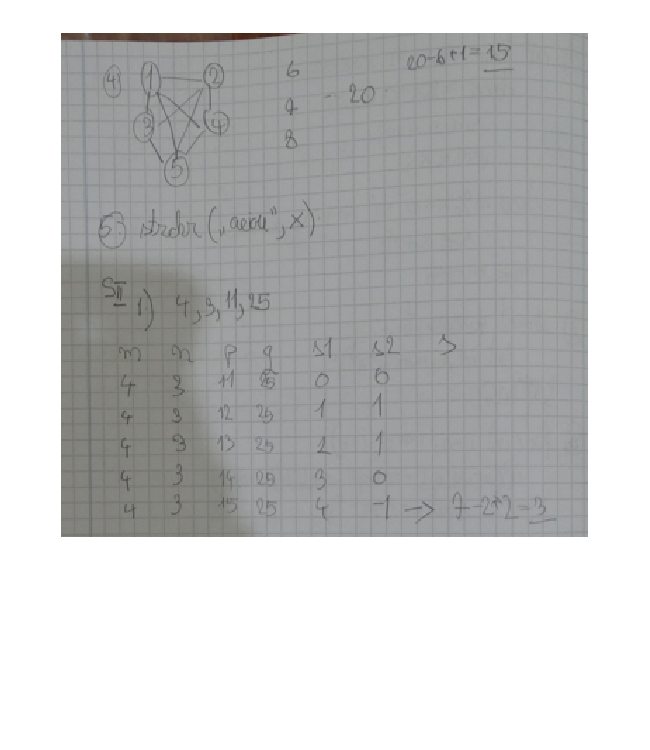 20-6+1=15
4 1 2 6
3 4 7 - 20
5 8
5) strchr („aeiou", x)
SII 1) 4, 3, 11, 25
m n p q s1 s2 s
4 3 11 25 0 0
4 3 12 25 1 1
4 3 13 25 2 1
4 3 14 25 3 0
4 3 15 25 4 -1 → 7-2+2=3